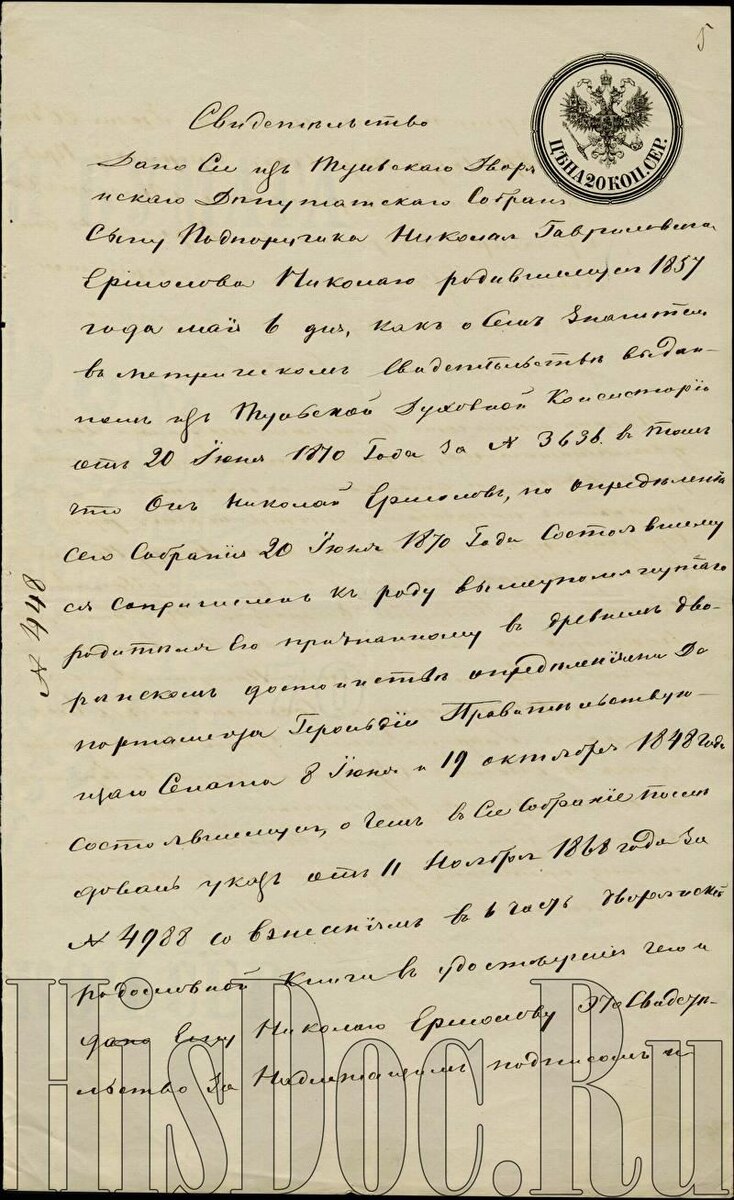 5
ЦѢНА 20 КОП. СЕР.
Свидетельство
Дано Сіе изъ Тульскаго Дворя
нскаго Депутатскаго Собран
Сыну Подпоручика Николая Гавриловича
Ермолова Николаю родившемуся 1857
года маія 6 дня, какъ о Семъ Значится
въ метрическомъ Свидетельстве выдан-
номъ изъ Тульской Духовной Консисторіи
отъ 20 Іюня 1870 Года За № 3636. в томъ
что Онъ Николай Ермоловъ, по определенію
сего Собранія 20 Іюня 1870 Года Состоявшему
ся сопричисленъ къ роду вышеупомянутаго
родителя Его признанному в древнемъ дво-
рянскомъ достоинстве определеніями Де
портамента Герольдіи Правительствую-
щаго Сената 8 Іюня и 19 октября 1848 Года
состоявшемуся, о чемъ в Сіе Собраніе после
довалъ указъ отъ 11 Ноября 1868 года За
№ 4988 со внесеніемъ въ 6 часть дворянской
родословной Книги въ удостовереніе чего и
дано Ему Николаю Ермолову Это Свидет-
льство За Надлежащимъ подписомъ и
№ 448
HisDoc.Ru